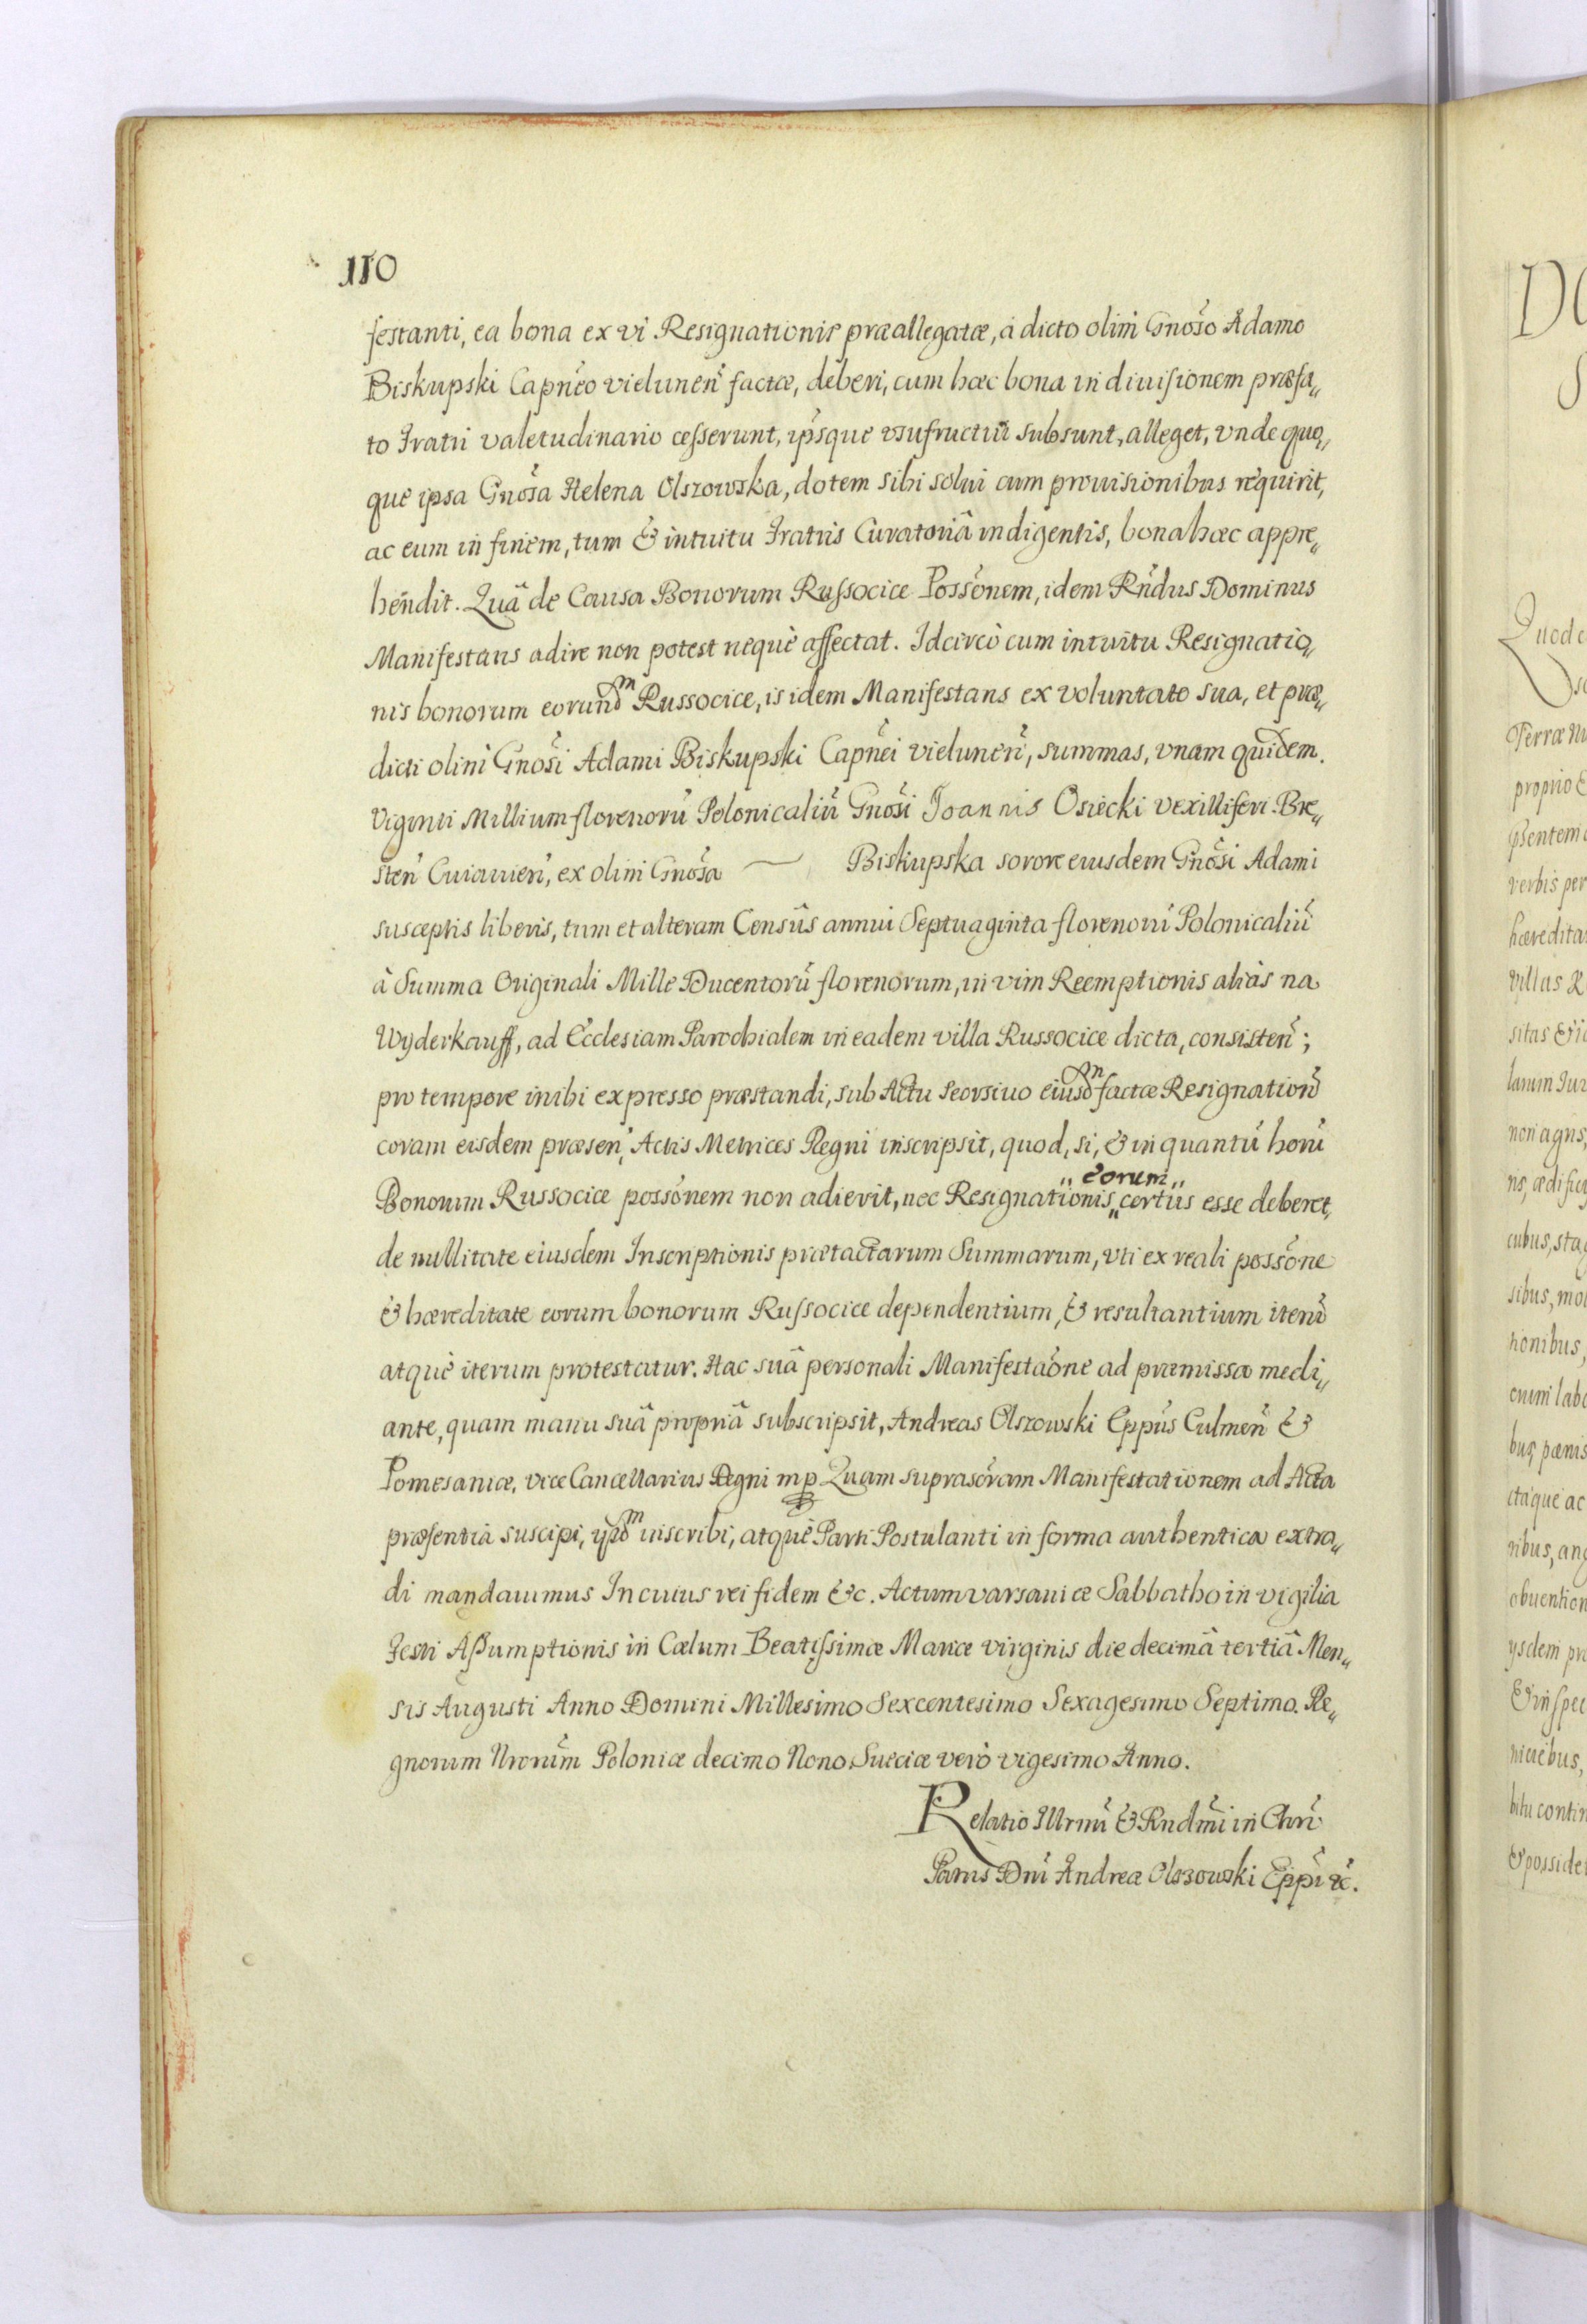 110
festanti, ea bona ex vi Resignationis præallegatæ, à dicto olim Gnoso Adamo
Biskupski Capneo vielunen factæ, deberi, cum hæc bona in diuisionem præfa„
to Fratri valetudinario cesserunt, ipsque vsufructui subsunt, alleget, vnde quo„
que ipsa Gnosa Helena Olszowska, dotem sibi solui cum prouisionibus requirit,
ac eum in finem, tum & intuitu Fratris Curatoriâ indigentis, bona hæc appre„
hendit. Quâ de Causa Bonorum Russocice Possonem, idem Rndus Dominus
Manifestans adire non potest nequè affectat. Idcircò cum intuitu Resignatio„
nis bonorum eorundm Russocice, is idem Manifestans ex voluntate sua, et præ„
dicti olim Gnosi Adami Biskupski Capnei vielunen, summas, vnam quidem.
Viginti Millium florenorũ Polonicaliũ Gnosi Joannis Osiecki vexilliferi Bre„
sten Cuiauien, ex olim Gnosa — Biskupska sorore eiusdem Gnosi Adami
susceptis liberis, tum et alteram Censûs annui Septuaginta florenorũ Polonicaliũ
à Summa Originali Mille Ducentorũ florenorum, in vim Reemptionis aliàs na
Wyderkauff, ad Ecclesiam Parochialem in eadem villa Russocice dicta, consisten;
pro tempore inibi expresso præstandi, sub Actu seorsiuo eiusdm factæ Resignation
coram eisdem præsen, Actis Metrices Regni inscripsit, quod, si, & in quantũ horũ
„eorum„
Bonorum Russocice possonem non adierit, nec Resignationis„ certus esse deberet,
de nullitate eiusdem Inscriptionis prætactarum Summarum, vti ex reali possone
& hæreditate eorum bonorum Russocice dependentium, & resultantium iterũ
atquè iterum protestatur. Hac suâ personali Manifestaone ad præmissa medi„
ante, quam manu suâ propriâ subscripsit, Andreas Olszowski Eppus Culmen &
Pomesaniæ, vice Cancellarius Regni mp Quam suprascram Manifestationem ad Acta
præsentia suscipi, ijsdm inscribi, atquè Parti Postulanti in forma authentica extra„
di mandauimus In cuius rei fidem &c. Actum varsauiæ Sabbatho in vigilia
Festi Assumptionis in Cælum Beatissimæ Mariæ virginis die decimâ tertiâ Men„
sis Augusti Anno Domini Millesimo Sexcentesimo Sexagesimo Septimo. Re„
gnorum Nrorum Poloniæ decimo Nono Sueciæ verò vigesimo Anno.
Relatio Illrmi & Rndmi in Chri
Patris Dni Andreæ Olszowski Eppi &c.